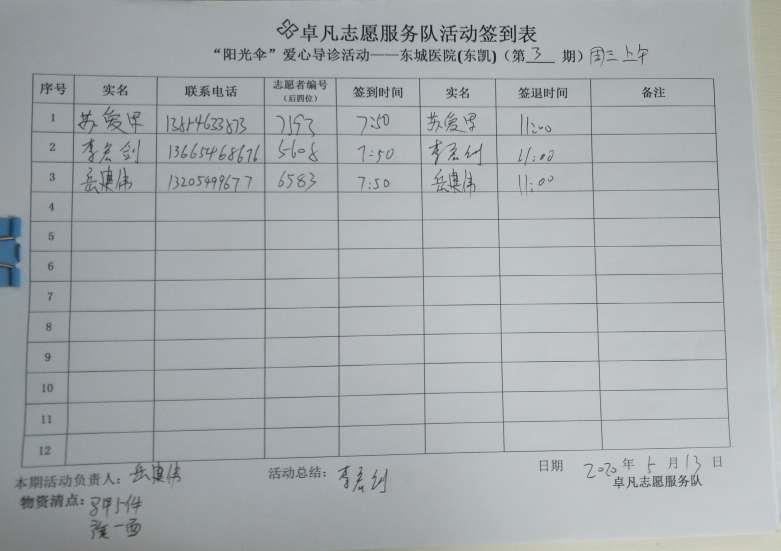 卓凡志愿服务队活动签到表
“阳光伞”爱心导诊活动——东城医院(东凯)（第 3 期）周三上午
序号 实名 联系电话 志愿者编号（后四位） 签到时间 实名 签退时间 备注
1 苏爱 7193 7:50 苏爱 11:00
2 李 13665468676 5608 7:50 李 11:00
3 岳 13205499677 6583 7:50 岳 11:00
4
5
6
7
8
9
10
11
12
本期活动负责人：岳 活动总结：李 日期 2020 年 5 月 13 日
物资清点：马甲5件 卓凡志愿服务队
一面